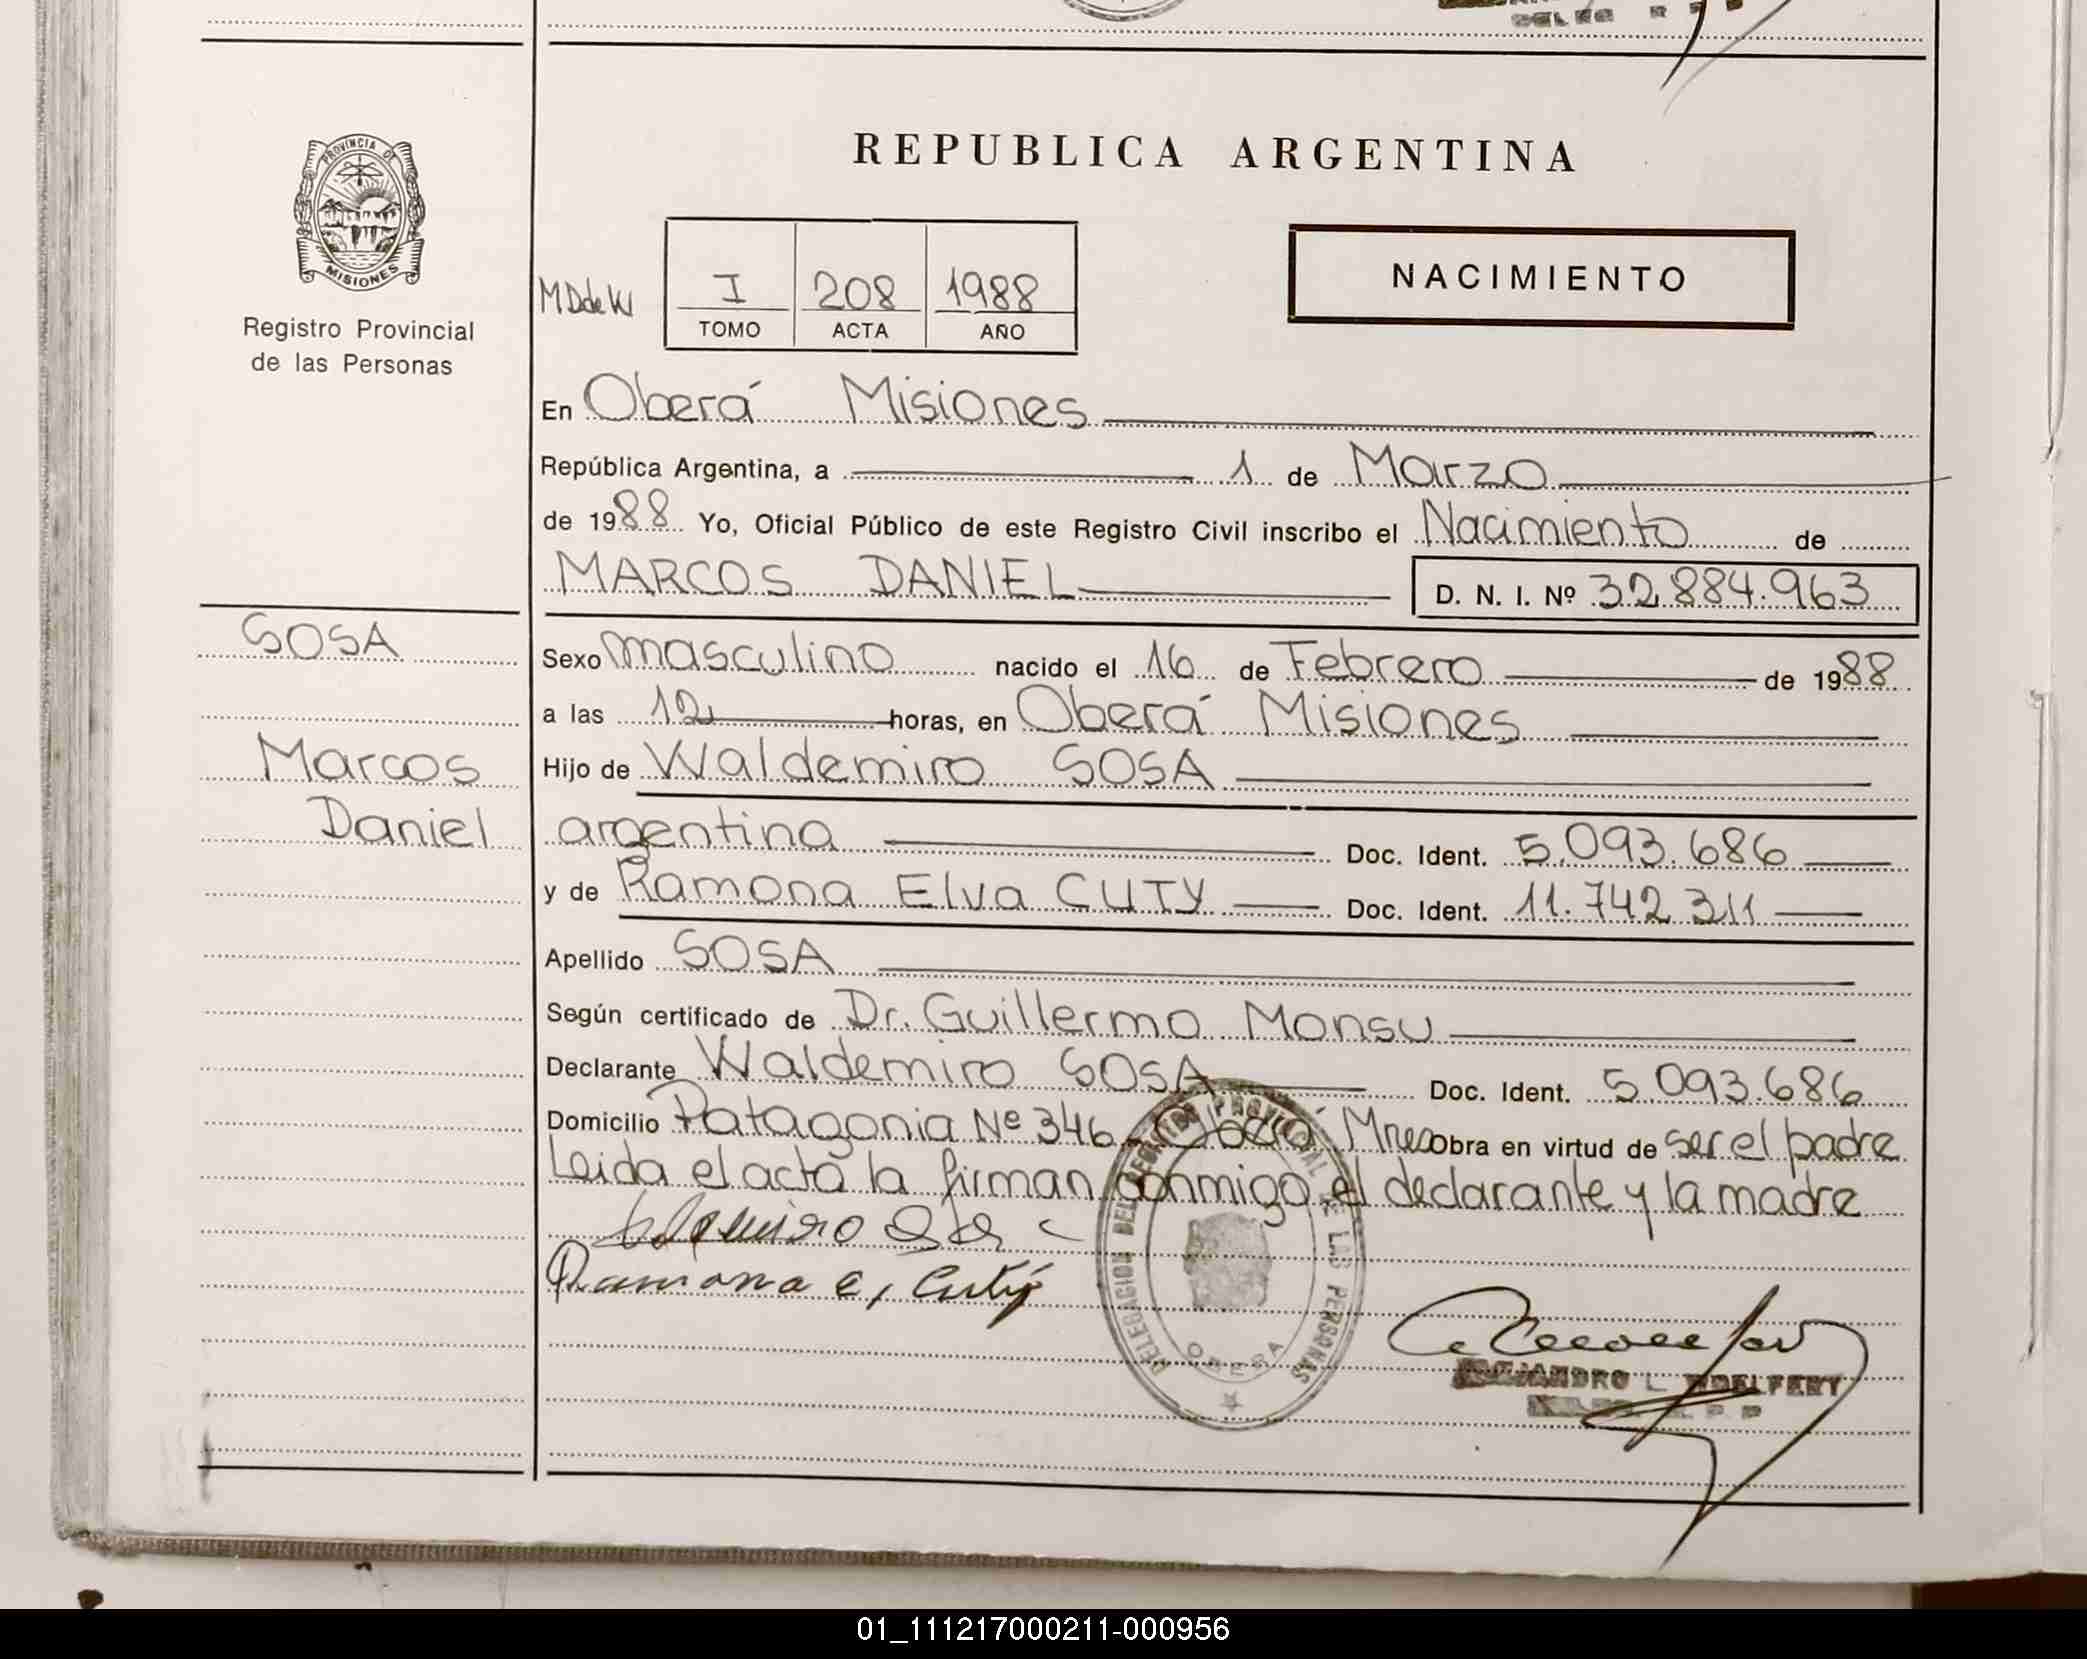 DELEG R P
PROVINCIA DE
MISIONES
Registro Provincial
de las Personas
REPUBLICA ARGENTINA
NACIMIENTO
MD de W
I 208 1988
TOMO ACTA AÑO
En Oberá Misiones
República Argentina, a 1 de Marzo
de 1988 Yo, Oficial Público de este Registro Civil inscribo el Nacimiento de
MARCOS DANIEL D. N. I. Nº 32.884.963
SOSA
Marcos
Daniel
Sexo masculino nacido el 16 de Febrero de 1988
a las 12 horas, en Oberá Misiones
Hijo de Waldemiro SOSA
argentina Doc. Ident. 5.093.686
y de Ramona Elva CUTY Doc. Ident. 11.742.311
Apellido SOSA
Según certificado de Dr. Guillermo Monsu
Declarante Waldemiro SOSA Doc. Ident. 5.093.686
Domicilio Patagonia Nº 346 - Oberá Mnes Obra en virtud de ser el padre
Leida el acta la firman conmigo el declarante y la madre
Ramona E, Cuty
DELEGACION DEL REGISTRO PROVINCIAL DE LAS PERSONAS
OBERA
ALEJANDRO L
R. P. P
01_111217000211-000956